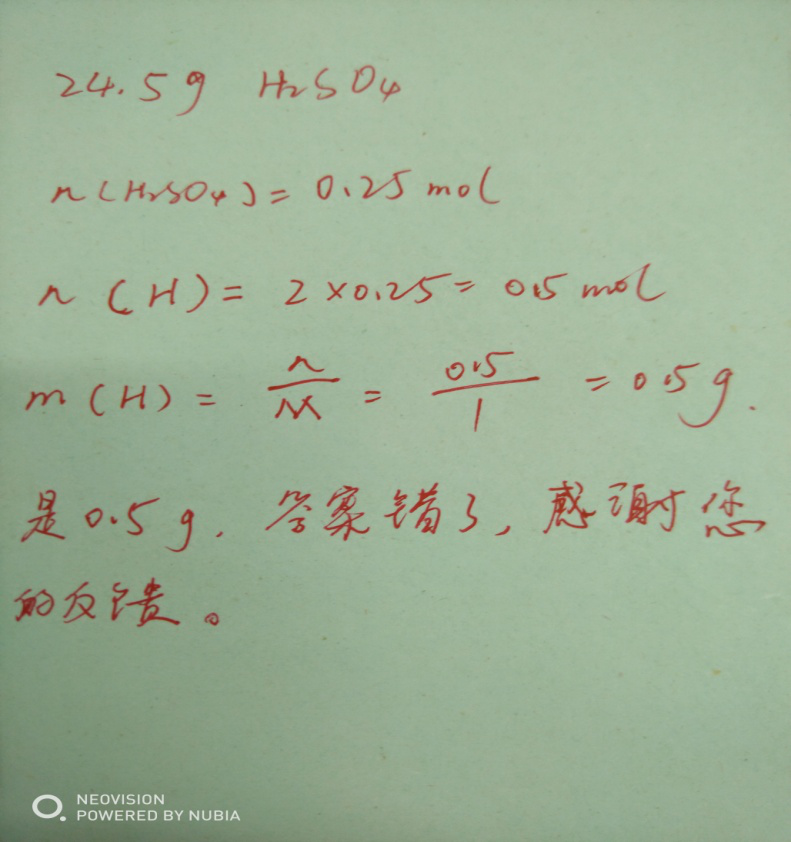 24.5g H₂SO₄
n(H₂SO₄)= 0.25 mol
n (H)= 2×0.25= 0.5 mol
m (H) = n/M = 0.5/1 = 0.5g.
是0.5g. 答案错了, 感谢您
的反馈。
NEOVISION
POWERED BY NUBIA